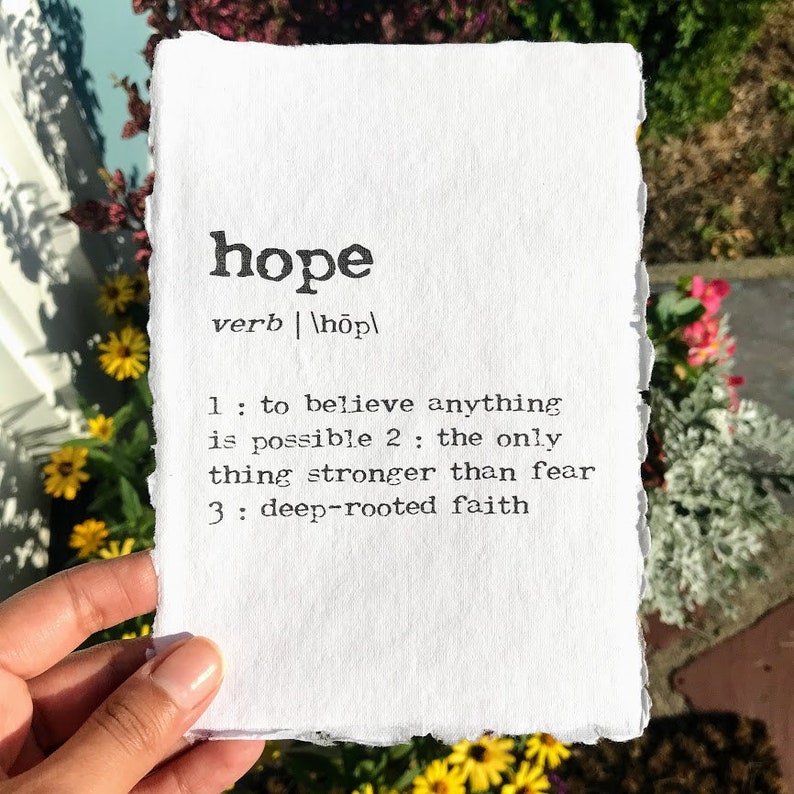 hope
verb | \hōp\
1 : to believe anything
is possible 2 : the only
thing stronger than fear
3 : deep-rooted faith